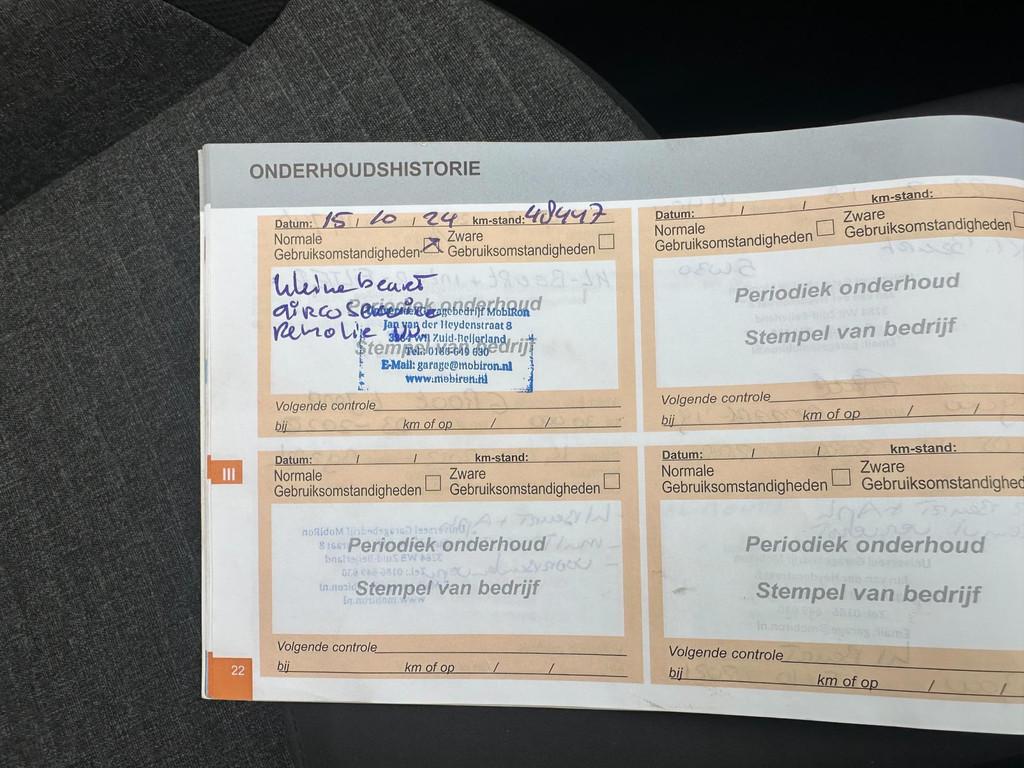 ONDERHOUDSHISTORIE
Datum: 15 / 10 / 24 km-stand: 48447
Normale Gebruiksomstandigheden Zware Gebruiksomstandigheden
kleine beurt
airco service
Remolie
Periodiek onderhoud
Stempel van bedrijf
Garagebedrijf MobiRon
Jan van der Heydenstraat 8
Zuid-Beijerland
Tel.: 0186-649 630
E-Mail: garage@mobiron.nl
www.mobiron.nl
Volgende controle
bij km of op / /
Datum: / / km-stand:
Normale Gebruiksomstandigheden Zware Gebruiksomstandigheden
Periodiek onderhoud
Stempel van bedrijf
Volgende controle
bij km of op / /
III
Datum: / / km-stand:
Normale Gebruiksomstandigheden Zware Gebruiksomstandigheden
Periodiek onderhoud
Stempel van bedrijf
Volgende controle
bij km of op / /
Datum: / / km-stand:
Normale Gebruiksomstandigheden Zware
Periodiek onderhoud
Stempel van bedrijf
Volgende controle
bij km of op / /
22